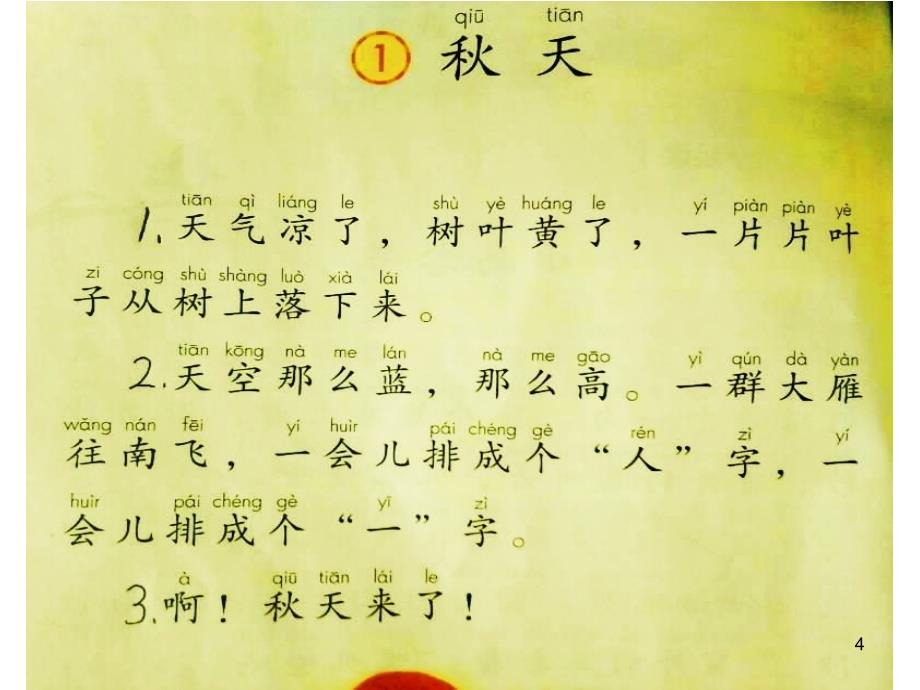 qiū tiān
1 秋天
tiān qì liáng le shù yè huáng le yí piàn piàn yè
1.天气凉了，树叶黄了，一片片叶
zi cóng shù shàng luò xià lái
子从树上落下来。
tiān kōng nà me lán nà me gāo yì qún dà yàn
2.天空那么蓝，那么高。一群大雁
wǎng nán fēi yí huìr pái chéng gè rén zì yí
往南飞，一会儿排成个“人”字，一
huìr pái chéng gè yī zì
会儿排成个“一”字。
à qiū tiān lái le
3.啊！秋天来了！
4